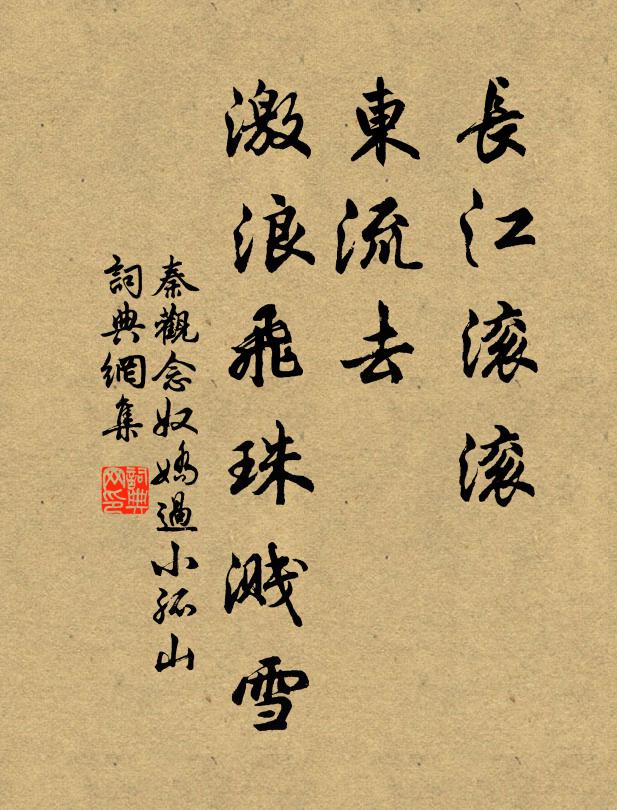 長江滚滚
東流去
激浪飛珠濺雪
秦觀念奴嬌過小孤山
詞典網集
詞典
网印